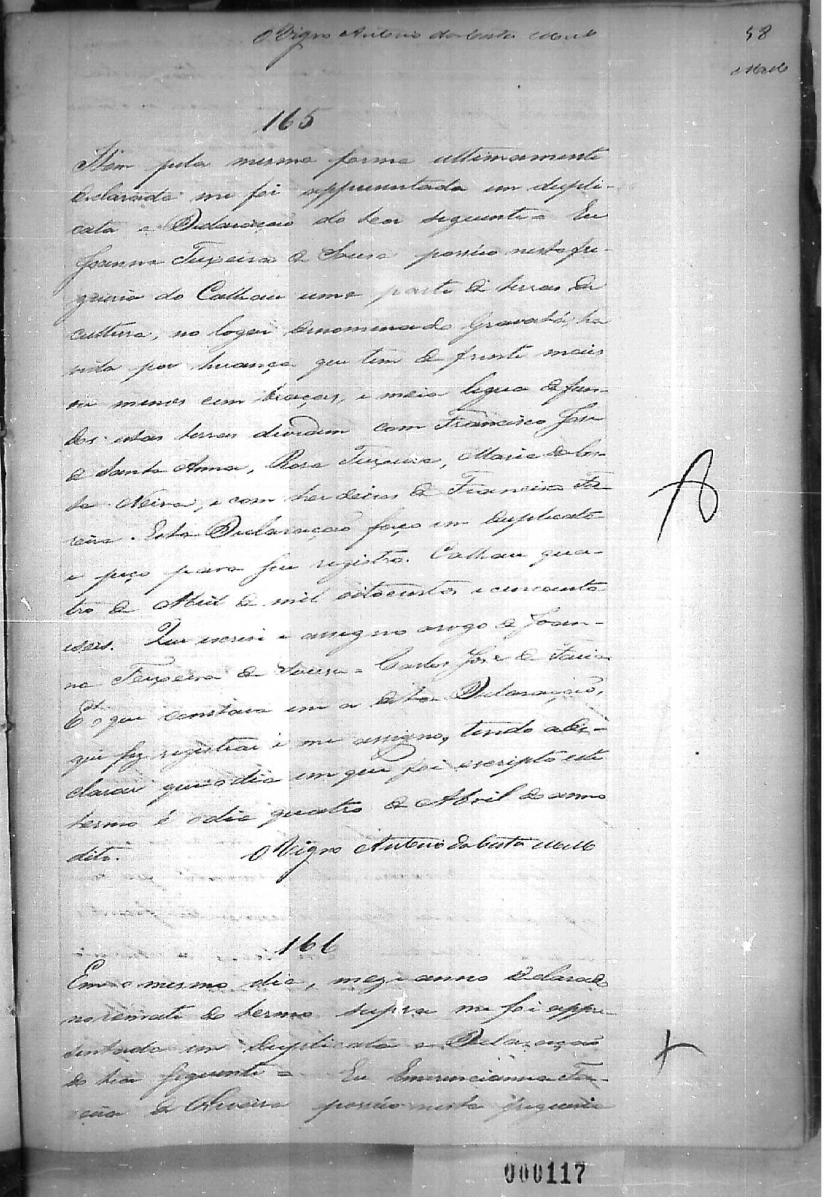 O Vigro Antonio da Costa Mello
58
Mello
165
Item pela mesma forma ultimamente
declarada me foi appresentada em dupli-
cata a Declaração do teor seguinte = Eu
Joanna Teixeira de Sousa possúo nesta fre-
guesia do Calhau uma parte de terras de
cultura, no logar denominado Gravatá, ha
vida por herança que tem de frente mais
ou menos cem braças, e meia legua de fun-
dos: estas terras dividem com Francisco José
de Santa Anna, Rosa Teixeira, Maria da Cos-
ta Vieira, e com herdeiros de Francisco
Esta Declaração faço em duplicata
e peço para seu registro. Calhau qua-
tro de Abril de mil oitocentos e cincoenta
e seis. Que escrevi e assigno arogo de Joan-
na Teixeira de Sousa = Carlos José de Faria
E o que constava em a dita Declaração,
que fiz registrar e me assigno, tendo a de-
clarar que o dia em que foi escripto este
termo é o dia quatro de Abril do anno
dito. O Vigro Antonio da Costa Mello
A
166
Em o mesmo dia, mez e anno declarado
no remate do termo supra me foi appre-
sentada em duplicata a Declaração
do teor seguinte = Eu Emerencianna
de Oliveira possúo nesta freguesia
+
000117